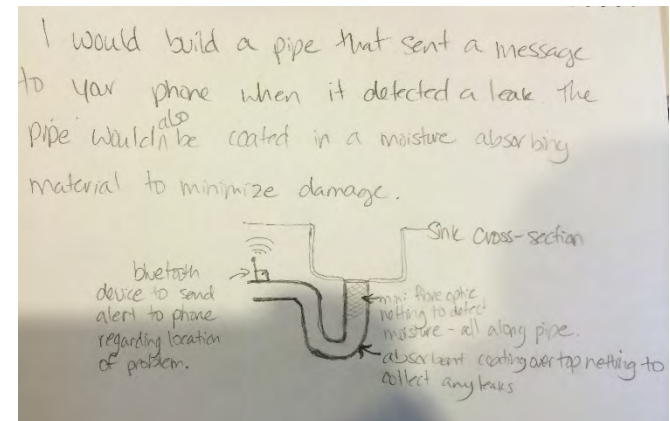 I would build a pipe that sent a message
to your phone when it detected a leak. The
pipe would also be coated in a moisture absorbing
material to minimize damage.
Sink cross-section
bluetooth
device to send
alert to phone
regarding location
of problem.
mini fibre optic
netting to detect
moisture - all along pipe.
absorbent coating over top netting to
collect any leaks